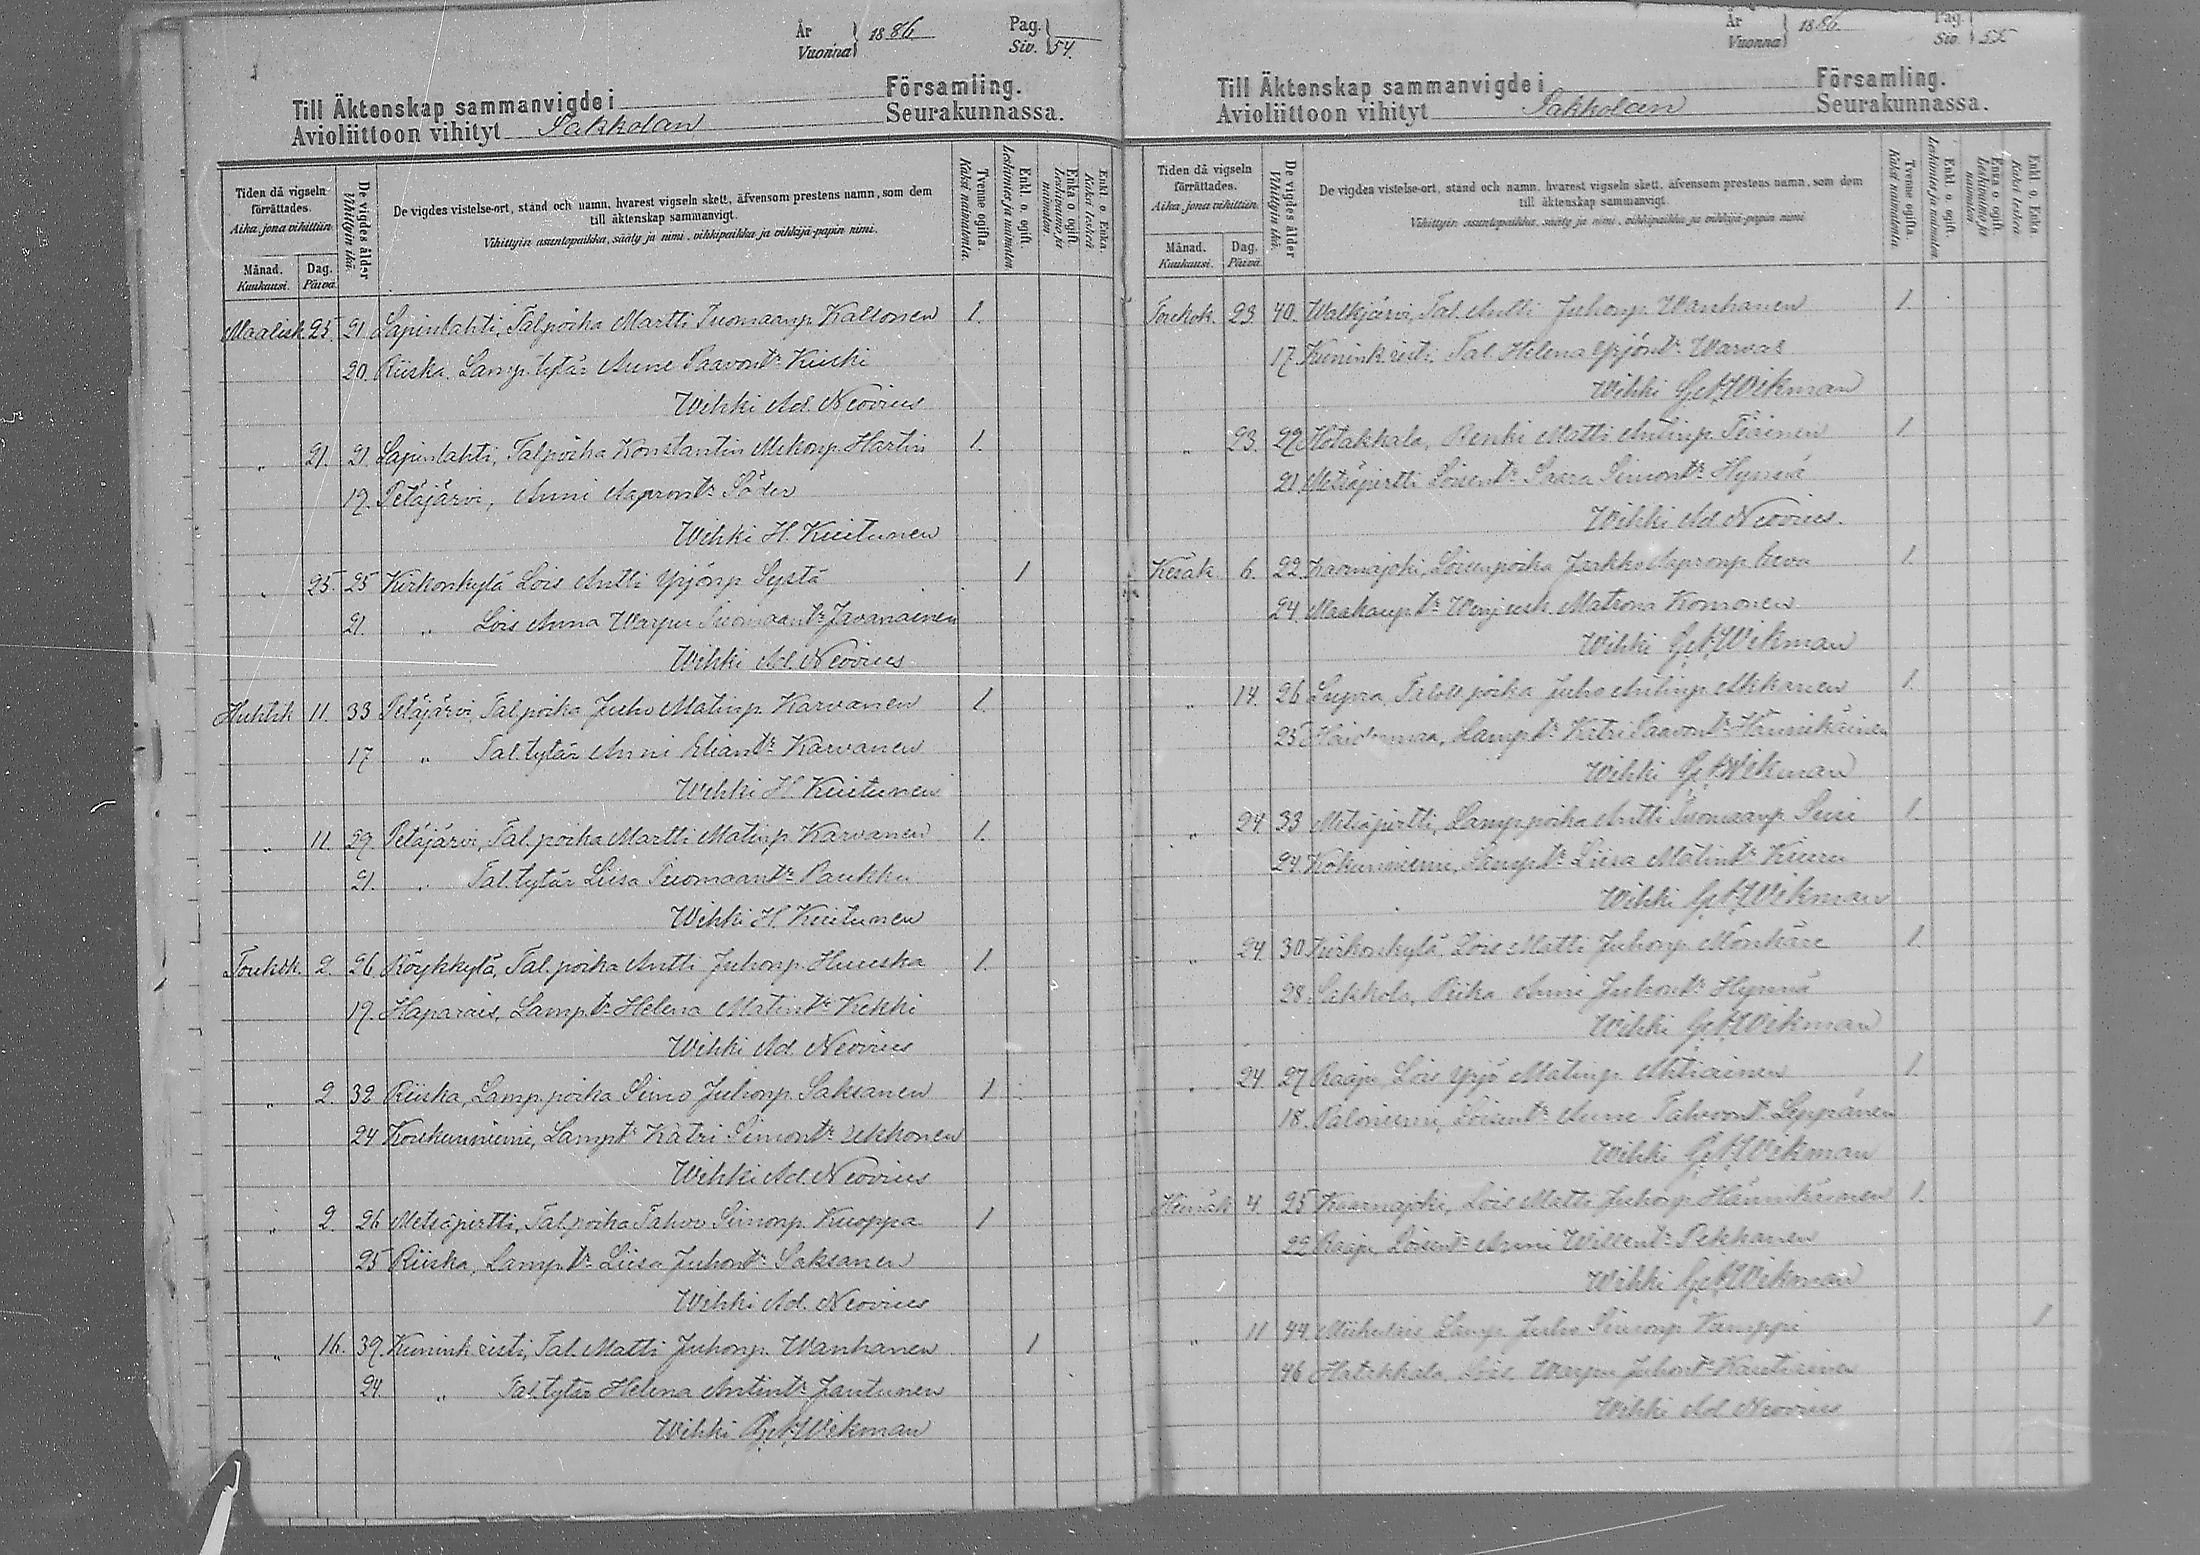 År Vuonna 1886. Pag. Siv. 54.
Till Äktenskap sammanvigde i Församling.
Avioliittoon vihityt Sakkolan Seurakunnassa.
Tiden då vigseln förrättades. Aika, jona vihittiin.
Månad. Kuukausi. Dag. Päivä.
De vigdes ålder Vihittyin ikä.
De vigdes vistelse-ort, stånd och namn, hvarest vigseln skett, äfvensom prestens namn, som dem till äktenskap sammanvigt.
Vihittyin asuntopaikka, sääty ja nimi, vihkipaikka ja vihkijä-papin nimi.
Tvenne ogifta. Kaksi naimatonta.
Enkl. o. ogift. Leskimies ja naimaton
Enka o ogift. Leskivaimo ja naimaton
Enkl. o. Enka. Kaksi leskeä
Maalisk. 25. 21 Lapinlahti, Tal.poika Martti Tuomaanp. Kallonen 1.
20. Riiska. Lamp. tytär Anne Paavont:r Kiiski
Wihki Ad. Neovius
„ 21. 21. Lapinlahti, Talpoika Konstantin Mikonp. Hartin 1.
19. Petäjärvi, Anni Apront:r Söder
Wihki H. Kuitunen
„ 25. 25 Kirkonkylä Lois Antti Yrjönp Systä 1
21. „ Lois Anna Warpu Tuomaant:r Javanainen
Wihki Ad. Neovius.
Huhtik 11. 33 Petäjärvi, Tal.poika Juho Matinp. Karvanen 1.
17 „ Tal.tytär Anni Eliant:r Karvanen
Wihki H. Kuitunen
„ 11. 29. Petäjärvi, Tal. poika Martti Matinp. Karvanen 1.
21. „ Tal.tytär Liisa Tuomaant:r Paukku
Wihki H. Kuitunen
Toukok. 2. 26. Röykkylä, Tal. poika Antti Juhonp. Huuska 1.
19. Haparais, Lamp.t:r Helena Matint:r Kekki
Wihki Ad. Neovius
„ 2. 32 Riiska, Lamp. poika Simo Juhonp. Saksanen 1
24 Koukunniemi, Lampt:r Katri Simont:r Ukkonen
Wihki Ad. Neovius
„ 2 26 Metsäpirtti, Tal.poika Tahvo Simonp. Kuoppa 1
25 Riiska, Lamp.t:r Liisa Juhont:r Saksanen
Wihki Ad. Neovius
„ 16. 39. Kunink.risti, Tal. Matti Juhonp. Wanhanen 1
24. „ Tal.tytär Helena Antint:r Jantunen
Wihki G. A. Wikman
År Vuonna 1886. Pag. Siv. 55
Till Äktenskap sammanvigde i Församling.
Avioliittoon vihityt Sakkolan Seurakunnassa.
Tiden då vigseln förrättades. Aika, jona vihittiin.
Månad. Kuukausi. Dag. Päivä
De vigdes ålder Vihittyin ikä.
De vigdes vistelse-ort, stånd och namn, hvarest vigseln skett, äfvensom prestens namn, som dem till äktenskap sammanvigt.
Vihittyin asuntopaikka, sääty ja nimi, vihkipaikka ja vihkijä-papin nimi
Tvenne ogifta. Kaksi naimatonta.
Enkl. o. ogift. Leskimies ja naimaton
Enka o ogift. Leskivaimo ja naimaton
Enkl. o. Enka. Kaksi leskeä
Toukok. 23. 40. Walkjärvi, Tal. Antti Juhonp. Wanhanen 1.
17. Kunink.risti. Tal. Helena Yrjönt:r Warvas
Wihki G. A. Wikman
„ 23. 22 Hatakkala, Renki Matti Antinp. 1.
21 Metsäpirtti Loisent:r Saara Simont:r Hynnä
Wihki Ad. Neovius.
Kesäk. 6. 22 Kaarnajoki, Loisenpoika Jaakko Apronp. 1.
24 Matrona Komonen
Wihki G. A. Wikman
„ 14. 26 poika Juho Antinp. Akkanen 1.
25 Haitermaa, Lampt:r Katri Paavont:r Hännikäinen
Wihki G. A. Wikman
„ 24 33 Metsäpirtti, Lamp.poika Antti Tuomaanp. 1.
24 Lampt:r Liisa Matint:r Kuuru
Wihki G. A. Wikman
„ 24 30 Kirkonkylä, Lois Matti Juhonp. Mönkäre 1.
28 Sakkola, Piika Anni Juhont:r Hynnä
Wihki G. A. Wikman
„ 24 27 Raaju, Lois Yrjö Matinp. Ahtiainen 1.
18. Paloniemi, Loisent:r Anne Tahvont:r Leppänen
Wihki G. A. Wikman
Heinäk 4. 25 Kaarnajoki, Lois Matti Juhonp. Hännikäinen 1.
22 Raaju Loisent:r Anni Willent:r Pekkanen
Wihki G. A. Wikman
„ 11 44 Lamp. Juho Simonp Kamppi 1
46 Hatakkala, Lois Warpu Juhont:r
Wihki Ad Neovius